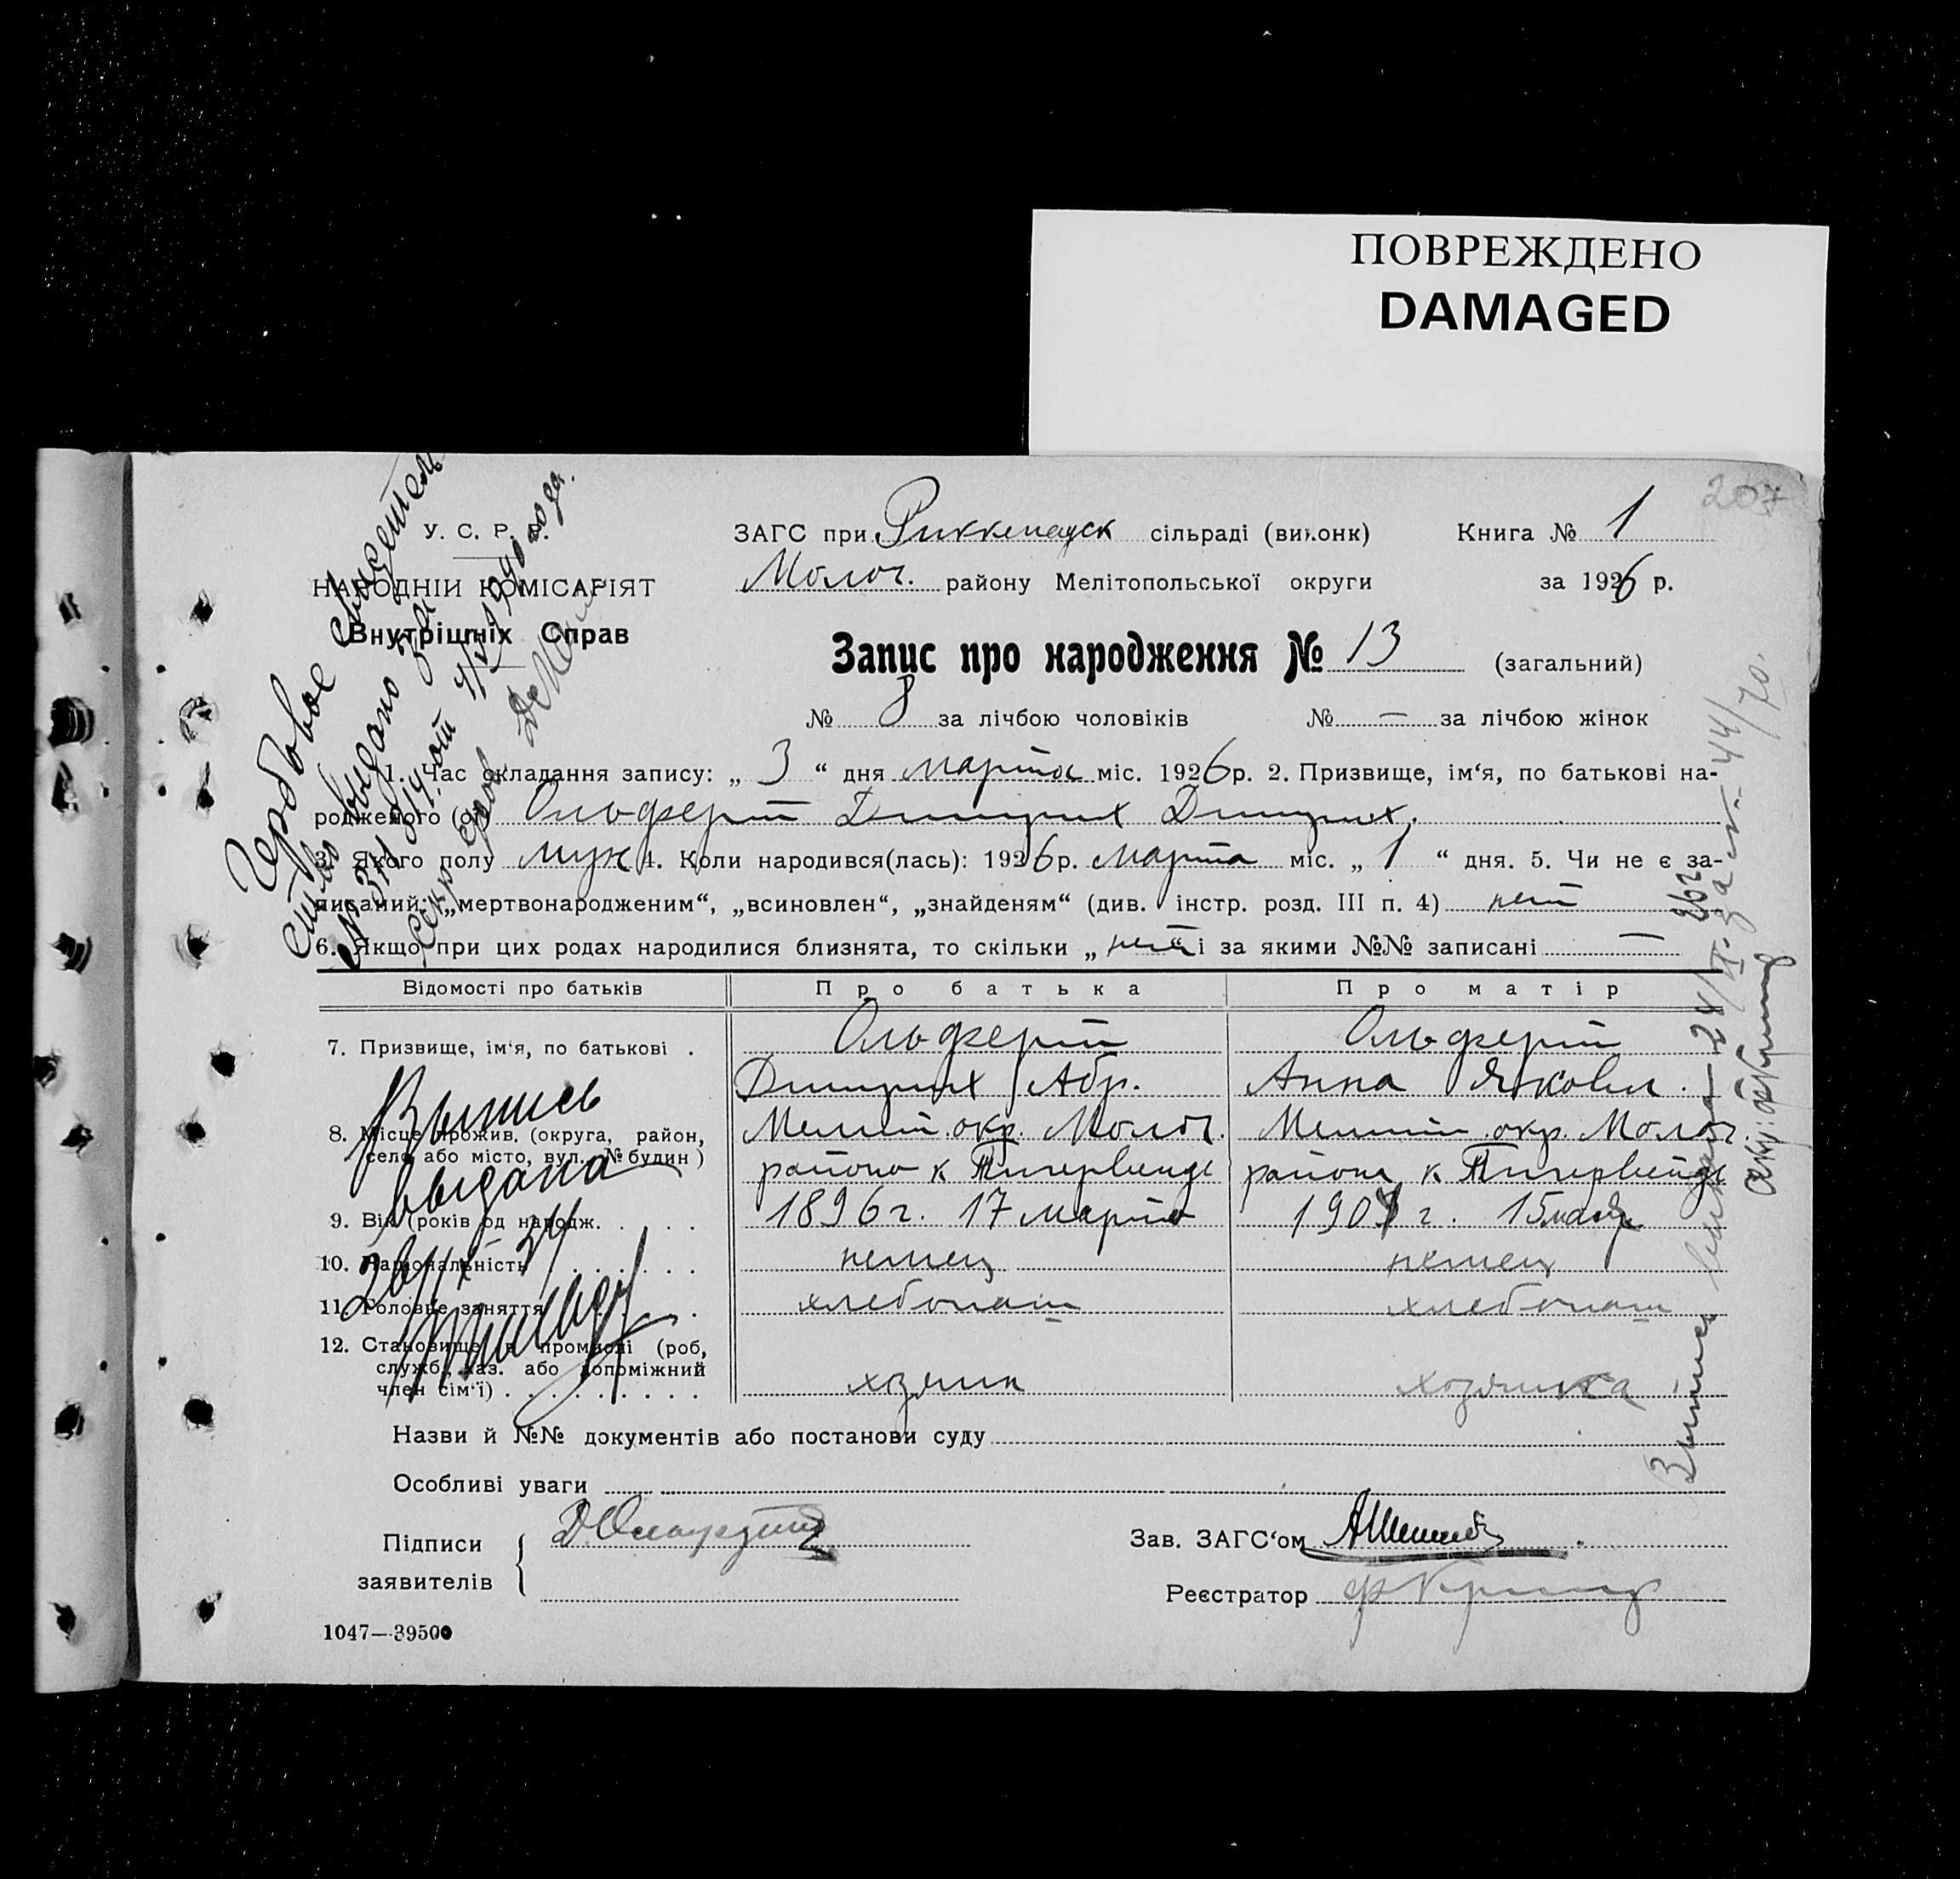 ПОВРЕЖДЕНО
DAMAGED
207
У. С. Р. Р.
НАРОДНІЙ КОМІСАРІЯТ
Внутрішніх Справ
ЗАГС при Риккенауск сільраді (виконк) Книга № 1
Молоч. району Мелітопольської округи за 1926 р.
Запис про народження № 13 (загальний)
№ 8 за лічбою чоловіків № — за лічбою жінок
1. Час складання запису: „ 3 “ дня марта міс. 1926 р. 2. Призвище, ім‘я, по батькові на-
родженого (ої) Ольферт Дитрих Дитрих.
3. Якого полу муж 4. Коли народився(лась): 1926 р. марта міс. „ 1 “ дня. 5. Чи не є за-
писаний: „мертвонародженим“, „всиновлен“, „знайденям“ (див. інстр. розд. III п. 4) нет
6. Якщо при цих родах народилися близнята, то скільки „ нет “ і за якими №№ записані —
Відомості про батьків Про батька Про матір
7. Призвище, ім‘я, по батькові . Ольферт Ольферт
Дитрих Абр. Анна Яковл.
8. Місце прожив. (округа, район, Мелит. окр. Молоч. Мелит. окр. Молоч
село або місто, вул. № будин) района к Тигервейде района к Тигервейде
9. Вік (років од народж. . . . . 1896 г. 17 марта 1901 г. 15 мая
10. Національність . . . . . . немец немец
11. Головне заняття . . . . хлебопаш хлебопаш
12. Становище в промислі (роб,
служб, хаз. або допоміжний
член сім‘ї) . . . . . . . . . хозяин хозяйка
Назви й №№ документів або постанови суду
Особливі уваги
Підписи
заявителів
Зав. ЗАГС‘ом
Реєстратор
1047—39500
Гербовое свидетель
ство выдано
1940 года.
Выпись
выдана
Выпись выдана